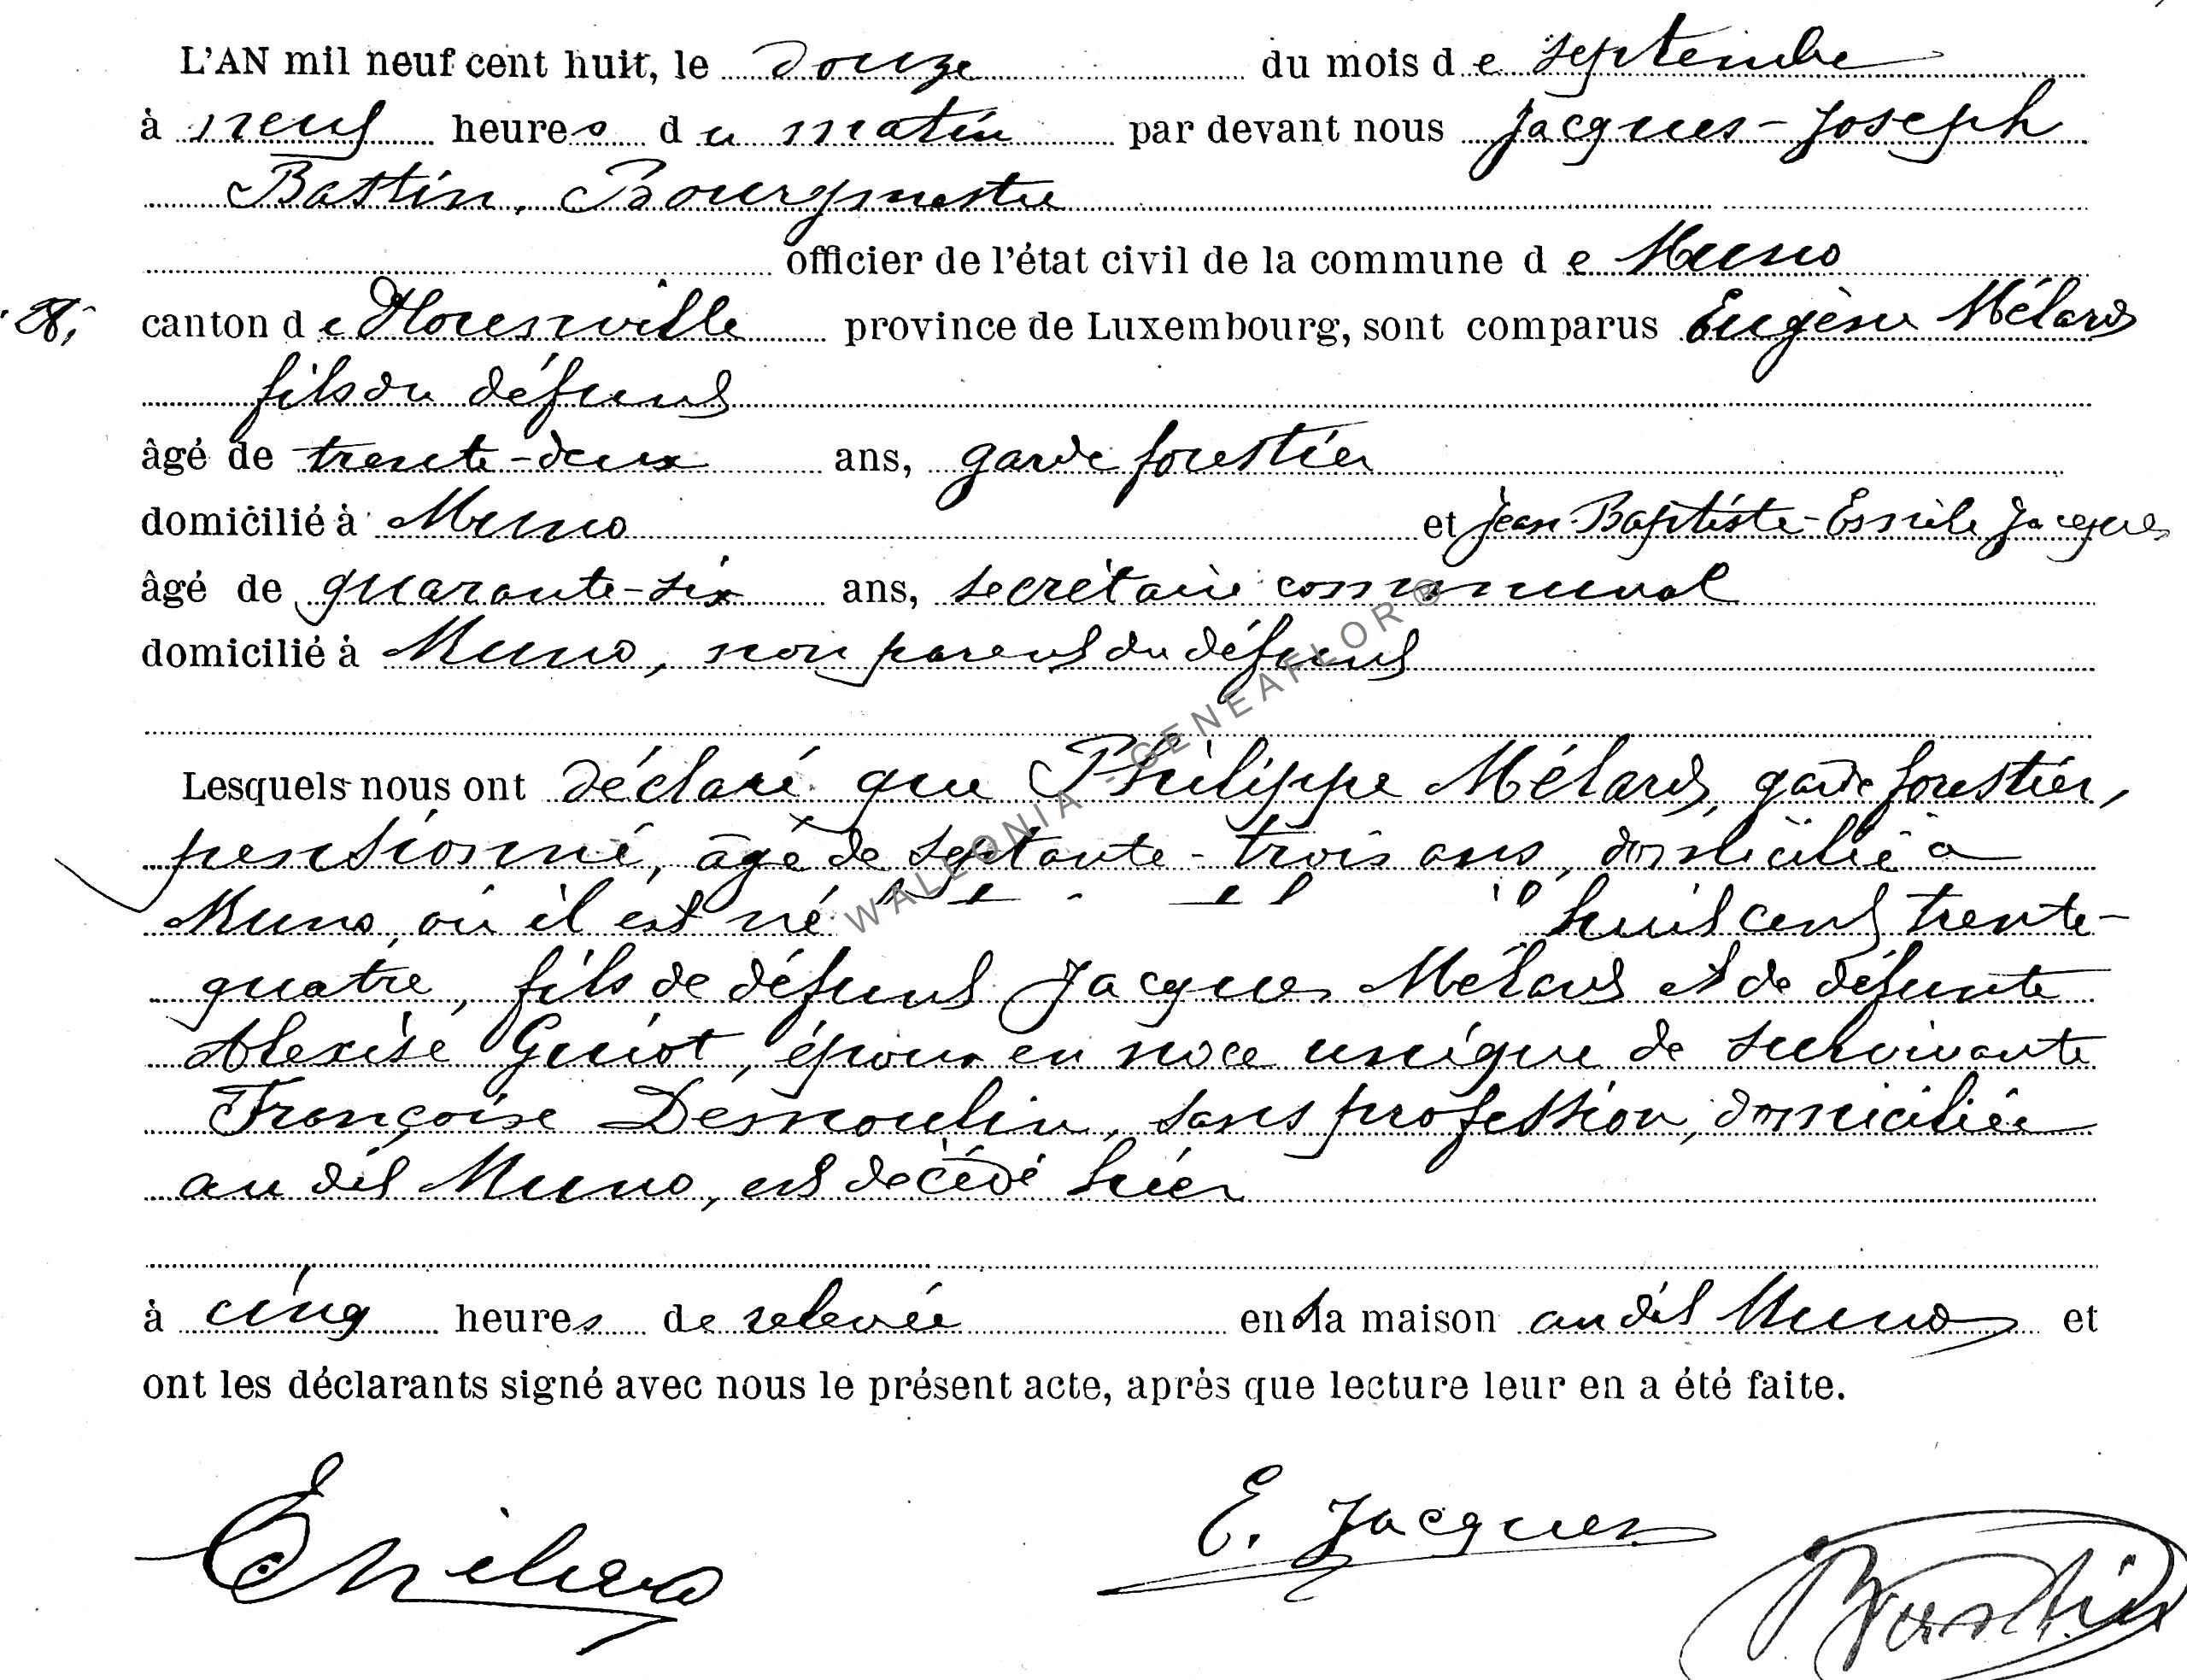 L'AN mil neuf cent huit, le douze du mois de septembre
à neuf heures du matin par devant nous Jacques-Joseph
Bastin, Bourgmestre
officier de l'état civil de la commune de Muno
canton de Florenville province de Luxembourg, sont comparus Eugène Mélard
fils du défunt
âgé de trente-deux ans, garde forestier
domicilié à Muno et Jean-Baptiste-Emile Jacques
âgé de quarante-six ans, secrétaire communal
domicilié à Muno, non parent du défunt
Lesquels nous ont déclaré que Philippe Mélard, garde forestier,
pensionné, âgé de septante-trois ans, domicilié à
Muno, où il est né huit cent trente-
quatre, fils de défunt Jacques Mélard et de défunte
Alexise Guiot, époux en noce unique de survivante
Françoise Demoulin, sans profession, domiciliée
au dit Muno, est décédé hier
à cinq heures de relevée en sa maison au dit Muno et
ont les déclarants signé avec nous le présent acte, après que lecture leur en a été faite.
E. Mélard
E. Jacques
Bastin
WALLONIA - GENEAFLOR ©